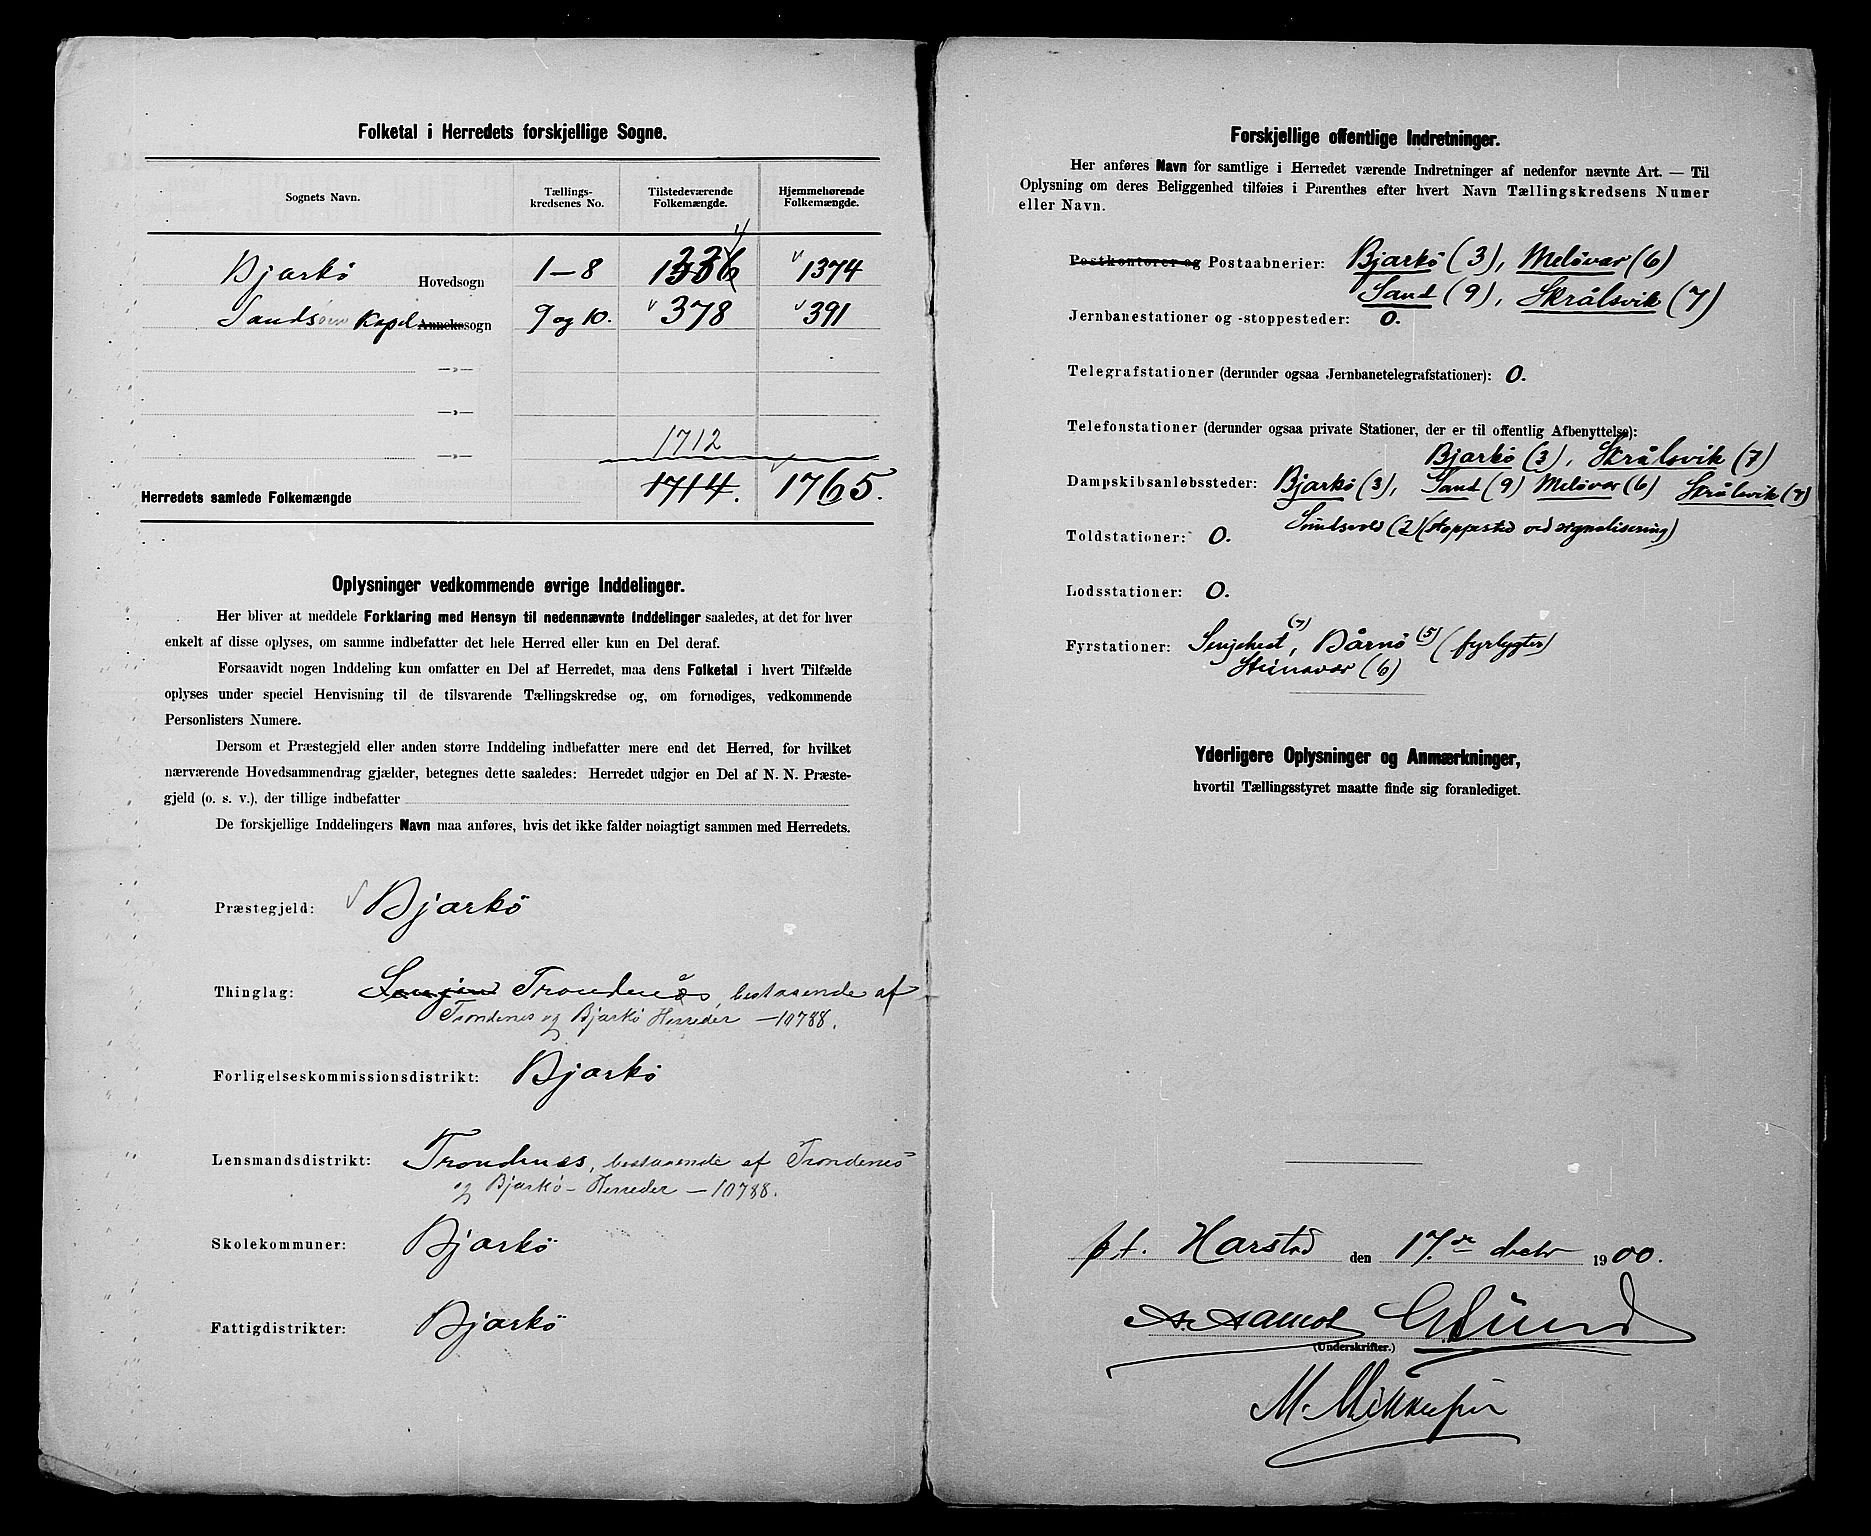 Folketal i Herredets forskjellige Sogne.
Sognets Navn. Tællings-kredsenes No. Tilstedeværende Folkemængde. Hjemmehørende Folkemængde.
4
Bjarkö Hovedsogn 1-8 1336 1374
Sandsöen Kapel Annekssogn 9 og 10. 378 391
—»—
—»—
1712
—»—
Herredets samlede Folkemængde 1714. 1765.
Oplysninger vedkommende øvrige Inddelinger.
Her bliver at meddele Forklaring med Hensyn til nedennævnte Inddelinger saaledes, at det for hver
enkelt af disse oplyses, om samme indbefatter det hele Herred eller kun en Del deraf.
Forsaavidt nogen Inddeling kun omfatter en Del af Herredet, maa dens Folketal i hvert Tilfælde
oplyses under speciel Henvisning til de tilsvarende Tællingskredse og, om fornødiges, vedkommende
Personlisters Numere.
Dersom et Præstegjeld eller anden større Inddeling indbefatter mere end det Herred, for hvilket
nærværende Hovedsammendrag gjælder, betegnes dette saaledes: Herredet udgjør en Del af N. N. Præste-
gjeld (o. s. v.), der tillige indbefatter
De forskjellige Inddelingers Navn maa anføres, hvis det ikke falder nøiagtigt sammen med Herredets.
Præstegjeld: Bjarkö
Thinglag: Senjen Trondenæs, bestaaende af
Trondenes og Bjarkö Herreder - 10788.
Forligelseskommissionsdistrikt: Bjarkö
Lensmandsdistrikt: Trondenæs, bestaaende af Trondenes
og Bjarkö - Herreder - 10788.
Skolekommuner: Bjarkö
Fattigdistrikter: Bjarkö
Forskjellige offentlige Indretninger.
Her anføres Navn for samtlige i Herredet værende Indretninger af nedenfor nævnte Art. — Til
Oplysning om deres Beliggenhed tilføies i Parenthes efter hvert Navn Tællingskredsens Numer
eller Navn.
Postkontorer og Postaabnerier: Bjarkö (3), Melövær (6)
Sand (9), Skrålsvik (7)
Jernbanestationer og -stoppesteder: 0.
Telegrafstationer (derunder ogsaa Jernbanetelegrafstationer): 0.
Telefonstationer (derunder ogsaa private Stationer, der er til offentlig Afbenyttelse):
Bjarkö (3), Skrålsvik (7)
Dampskibsanløbssteder: Bjarkö (3), Sand (9) Melövær (6) Skrålsvik (7)
(2) (stoppested ved signalisering)
Toldstationer: 0.
Lodsstationer: 0.
Fyrstationer: Senjehest (7), Dårnö (5) (fyrlygter)
Steinavær (6)
Yderligere Oplysninger og Anmærkninger,
hvortil Tællingsstyret maatte finde sig foranlediget.
pt. Harstad den 17. de decbr 1900.
(Underskrifter.)
M. Mikkelsen